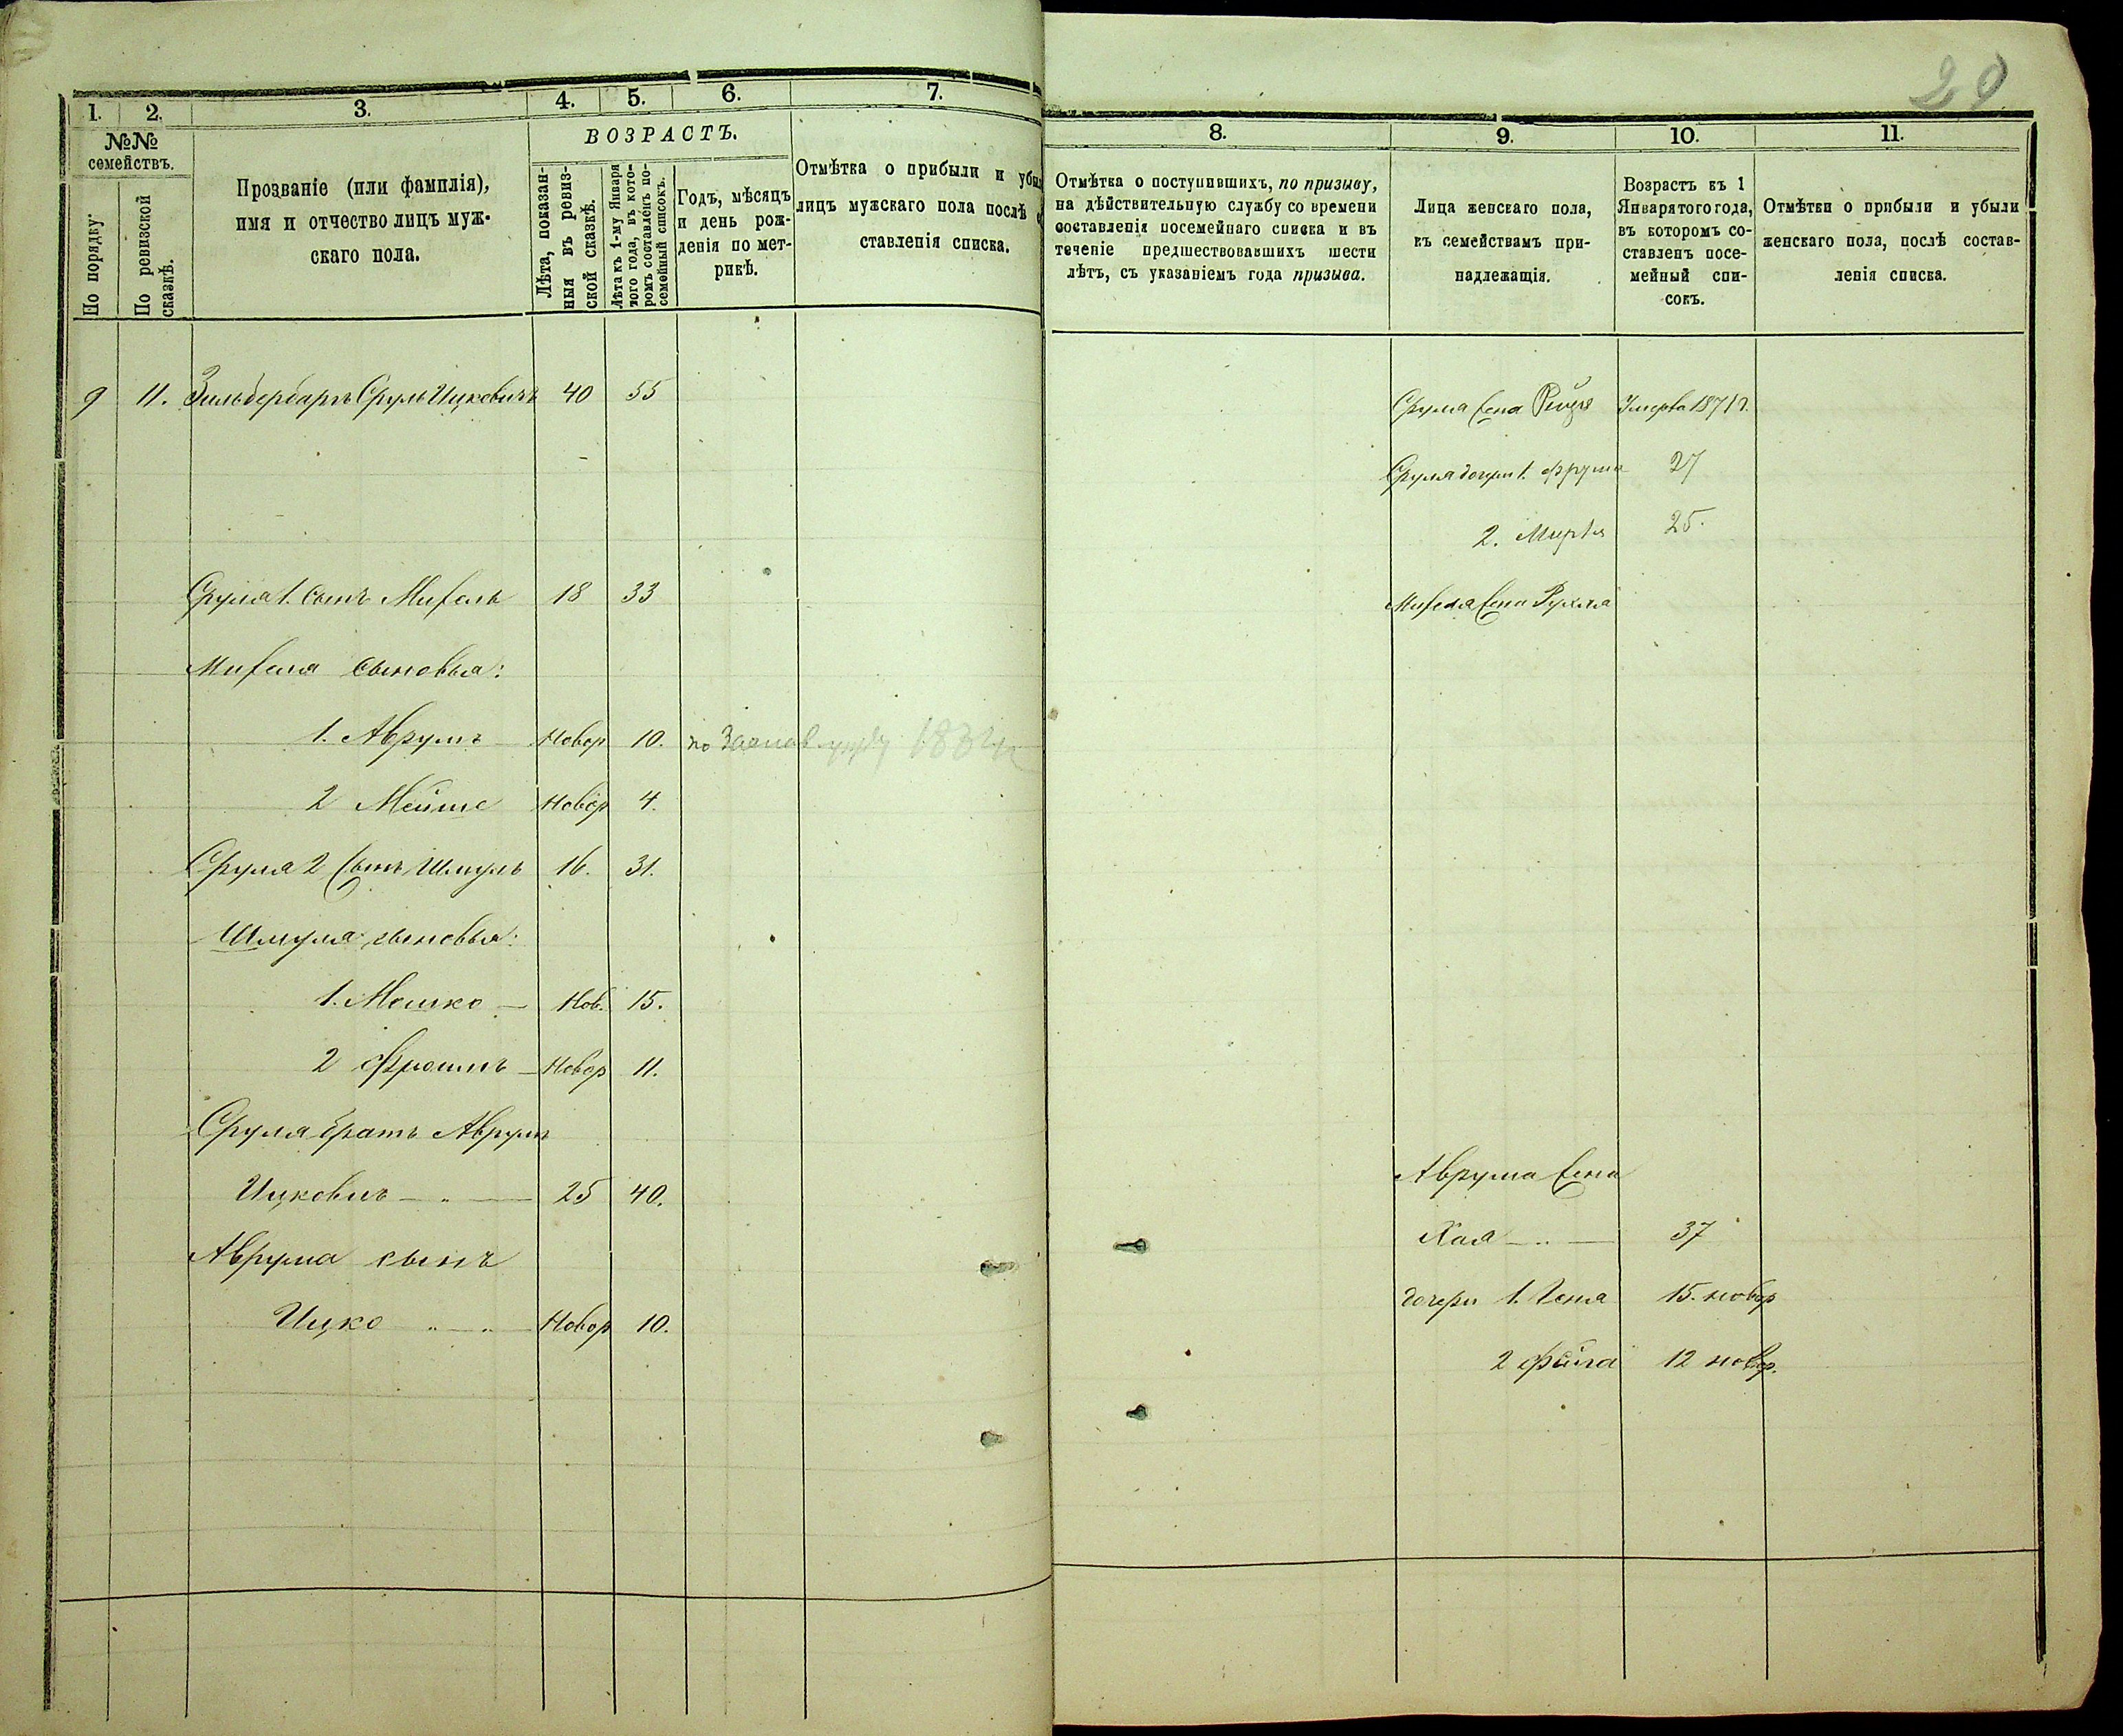 29
1. 2. 3. 4. 5. 6. 7.
№№ семействъ.
По порядку.
По ревизской сказкѣ.
Прозваніе (или фамилія),
имя и отчество лицъ муж-
скаго пола.
ВОЗРАСТЪ.
Лѣта, показан-
ныя въ ревиз-
ской сказкѣ.
Лѣта къ 1-му Января
того года, въ кото-
ромъ составленъ по-
семейный списокъ.
Годъ, мѣсяцъ
и день рож-
денія по мет-
рикѣ.
Отмѣтка о прибыли и убы
лицъ мужскаго пола послѣ
ставленія списка.
9 11. Зильбербаргъ Сруль Ицковичъ 40 55
Сруля 1. сынъ Михель 18 33
Михеля сыновья:
1. Аврумъ Новор 10. по
2 Мейше Новор 4.
Сруля 2 сынъ Шмуль 16. 31.
Шмуля сыновья:
1. Мошко — Нов. 15.
2 Фроимъ — Новор 11.
Сруля братъ Аврумъ
Ицковичъ — „ — 25 40.
Аврума сынъ
Ицко „ — „ Новор 10.
8. 9. 10. 11.
Отмѣтка о поступившихъ, по призыву,
на дѣйствительную службу со времени
составленія посемейнаго списка и въ
теченіе предшествовавшихъ шести
лѣтъ, съ указаніемъ года призыва.
Лица женскаго пола,
къ семействамъ при-
надлежащія.
Возрастъ къ 1
Января того года,
въ которомъ со-
ставленъ посе-
мейный спи-
сокъ.
Отмѣтки о прибыли и убыли
женскаго пола, послѣ состав-
ленія списка.
Сруля жена Умерла 1871 г.
Сруля дочери 1. Фрума 27
2. 25.
Михеля жена Рухля
Аврума жена
Хая — „ — 37
дочери 1. Геня 15. новор
2 Фейга 12 новор.